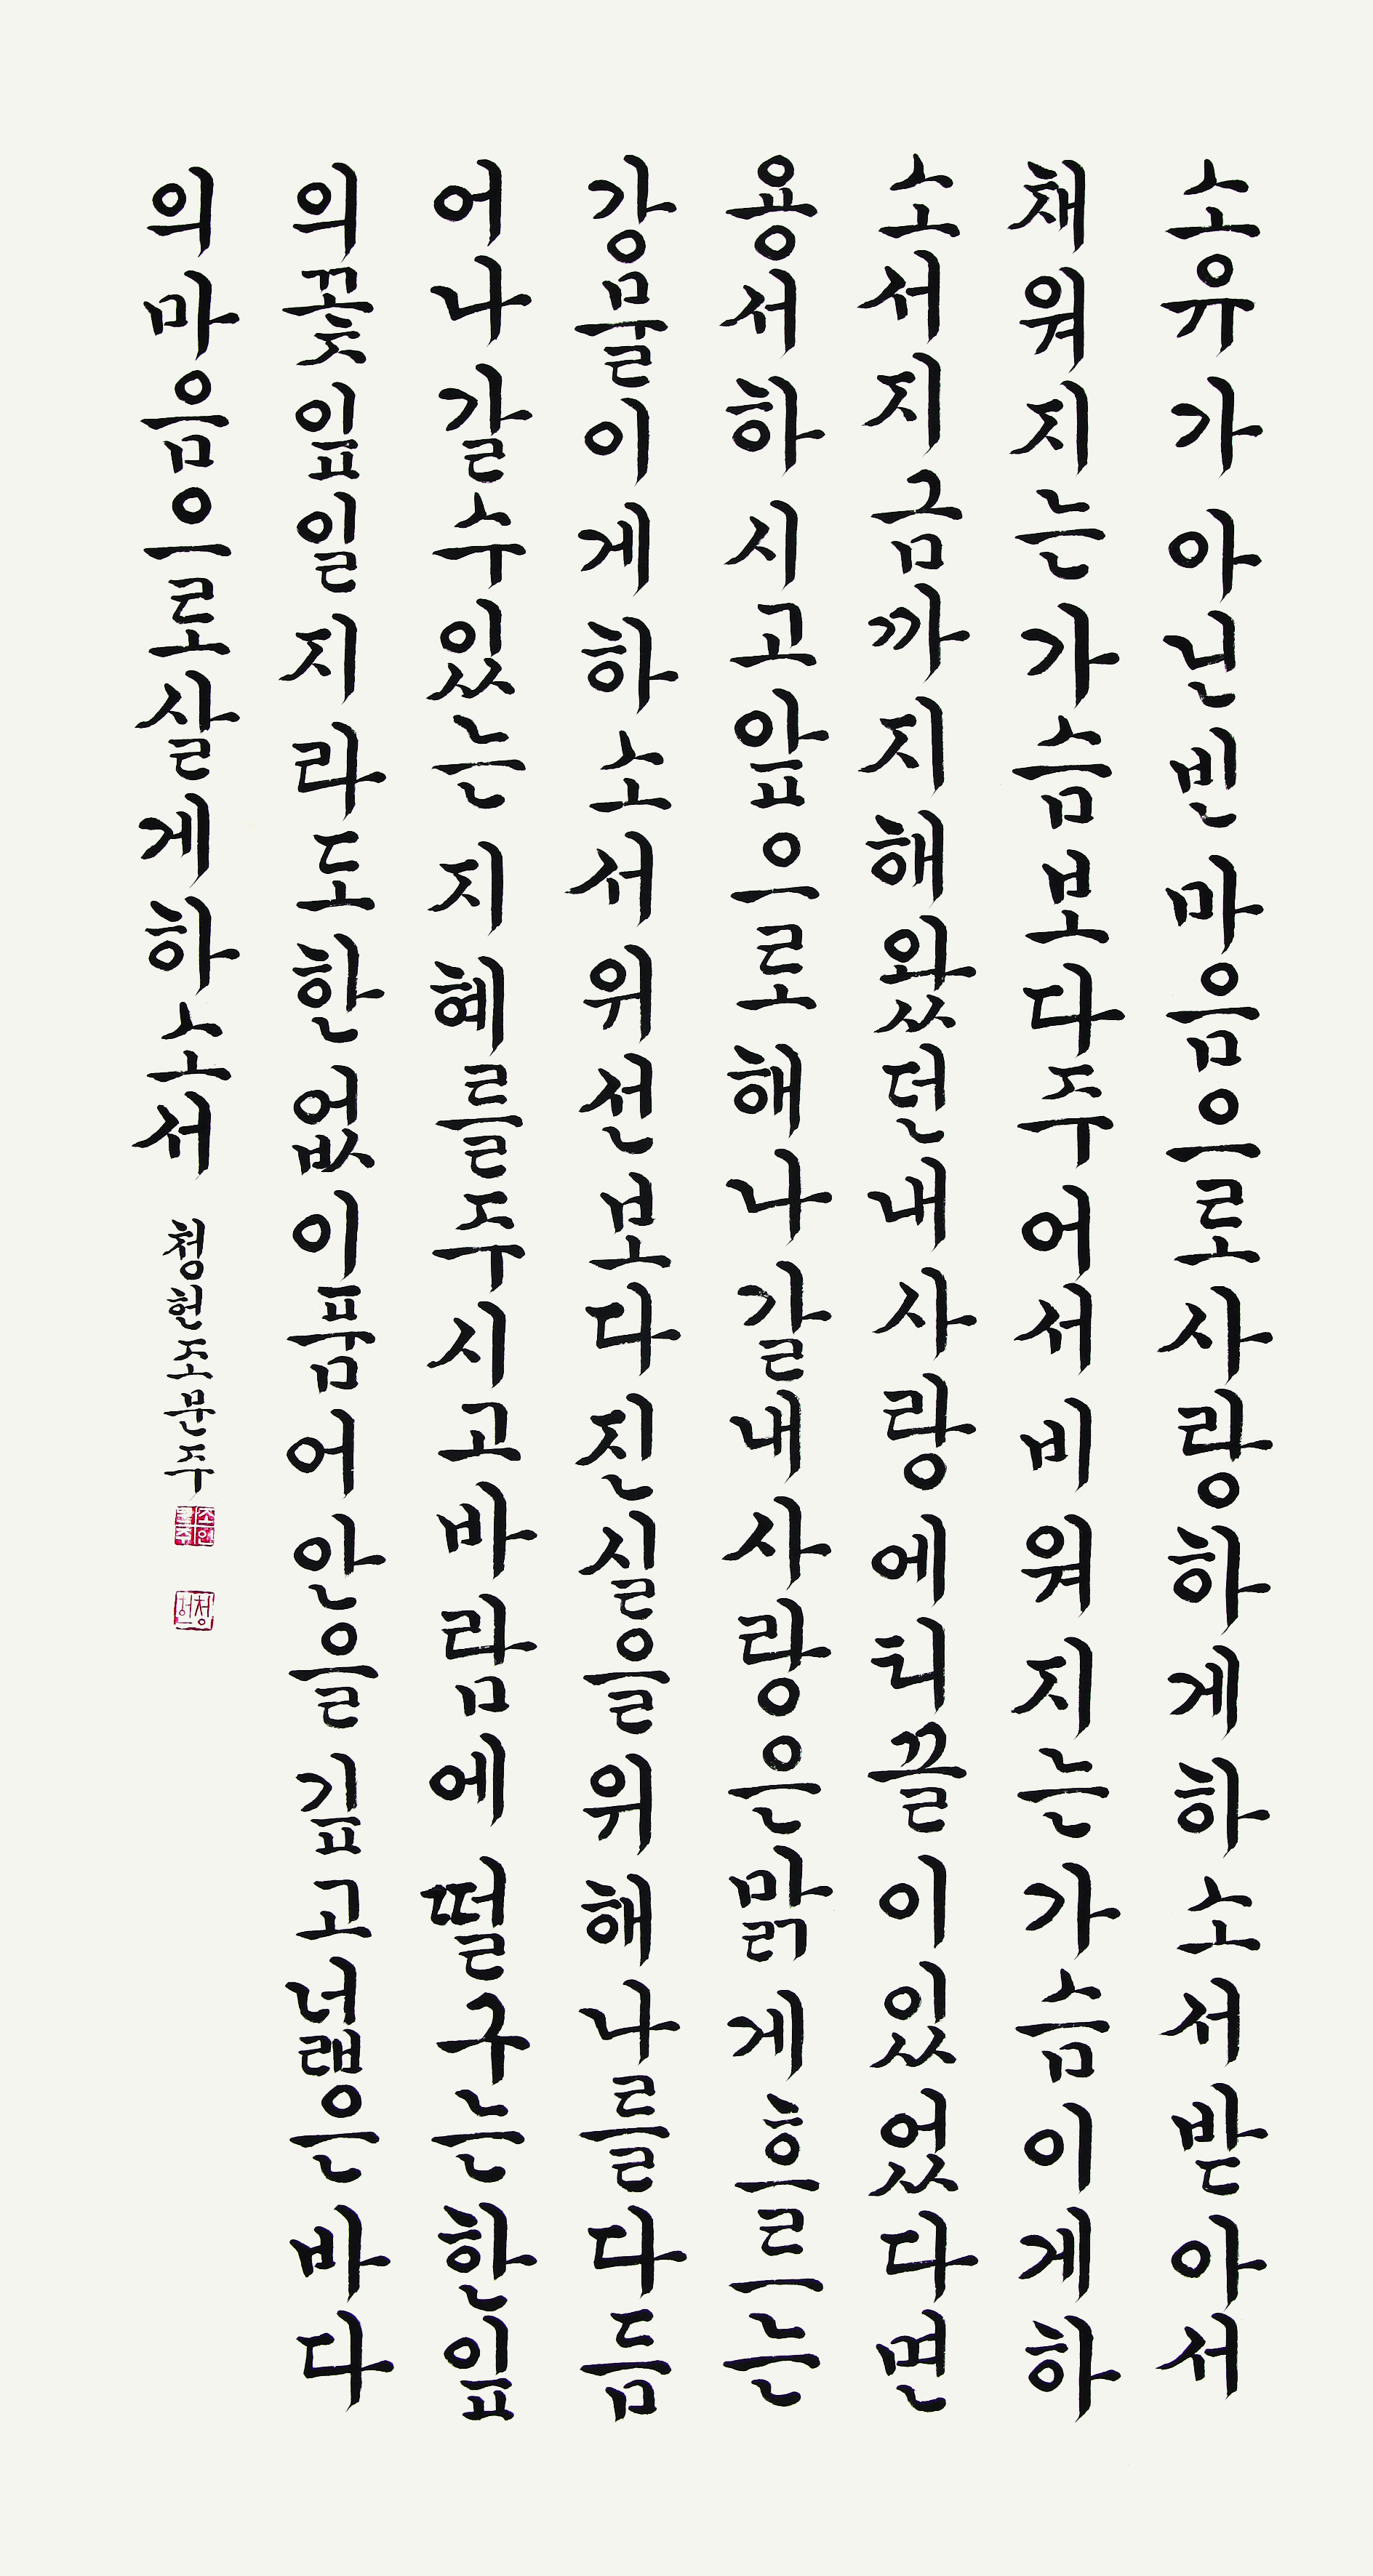 소유가아닌빈마음으로사랑하게하소서받아서
채워지는가슴보다주어서비워지는가슴이게하
소서지금까지해왔던내사랑에티끌이있었다면
용서하시고앞으로해나갈내사랑은맑게흐르는
강물이게하소서위선보다진실을위해나를다듬
어나갈수있는지혜를주시고바람에떨구는한잎
의꽃잎일지라도한없이품어안을깊고넓은바다
의마음으로살게하소서
청헌조문주